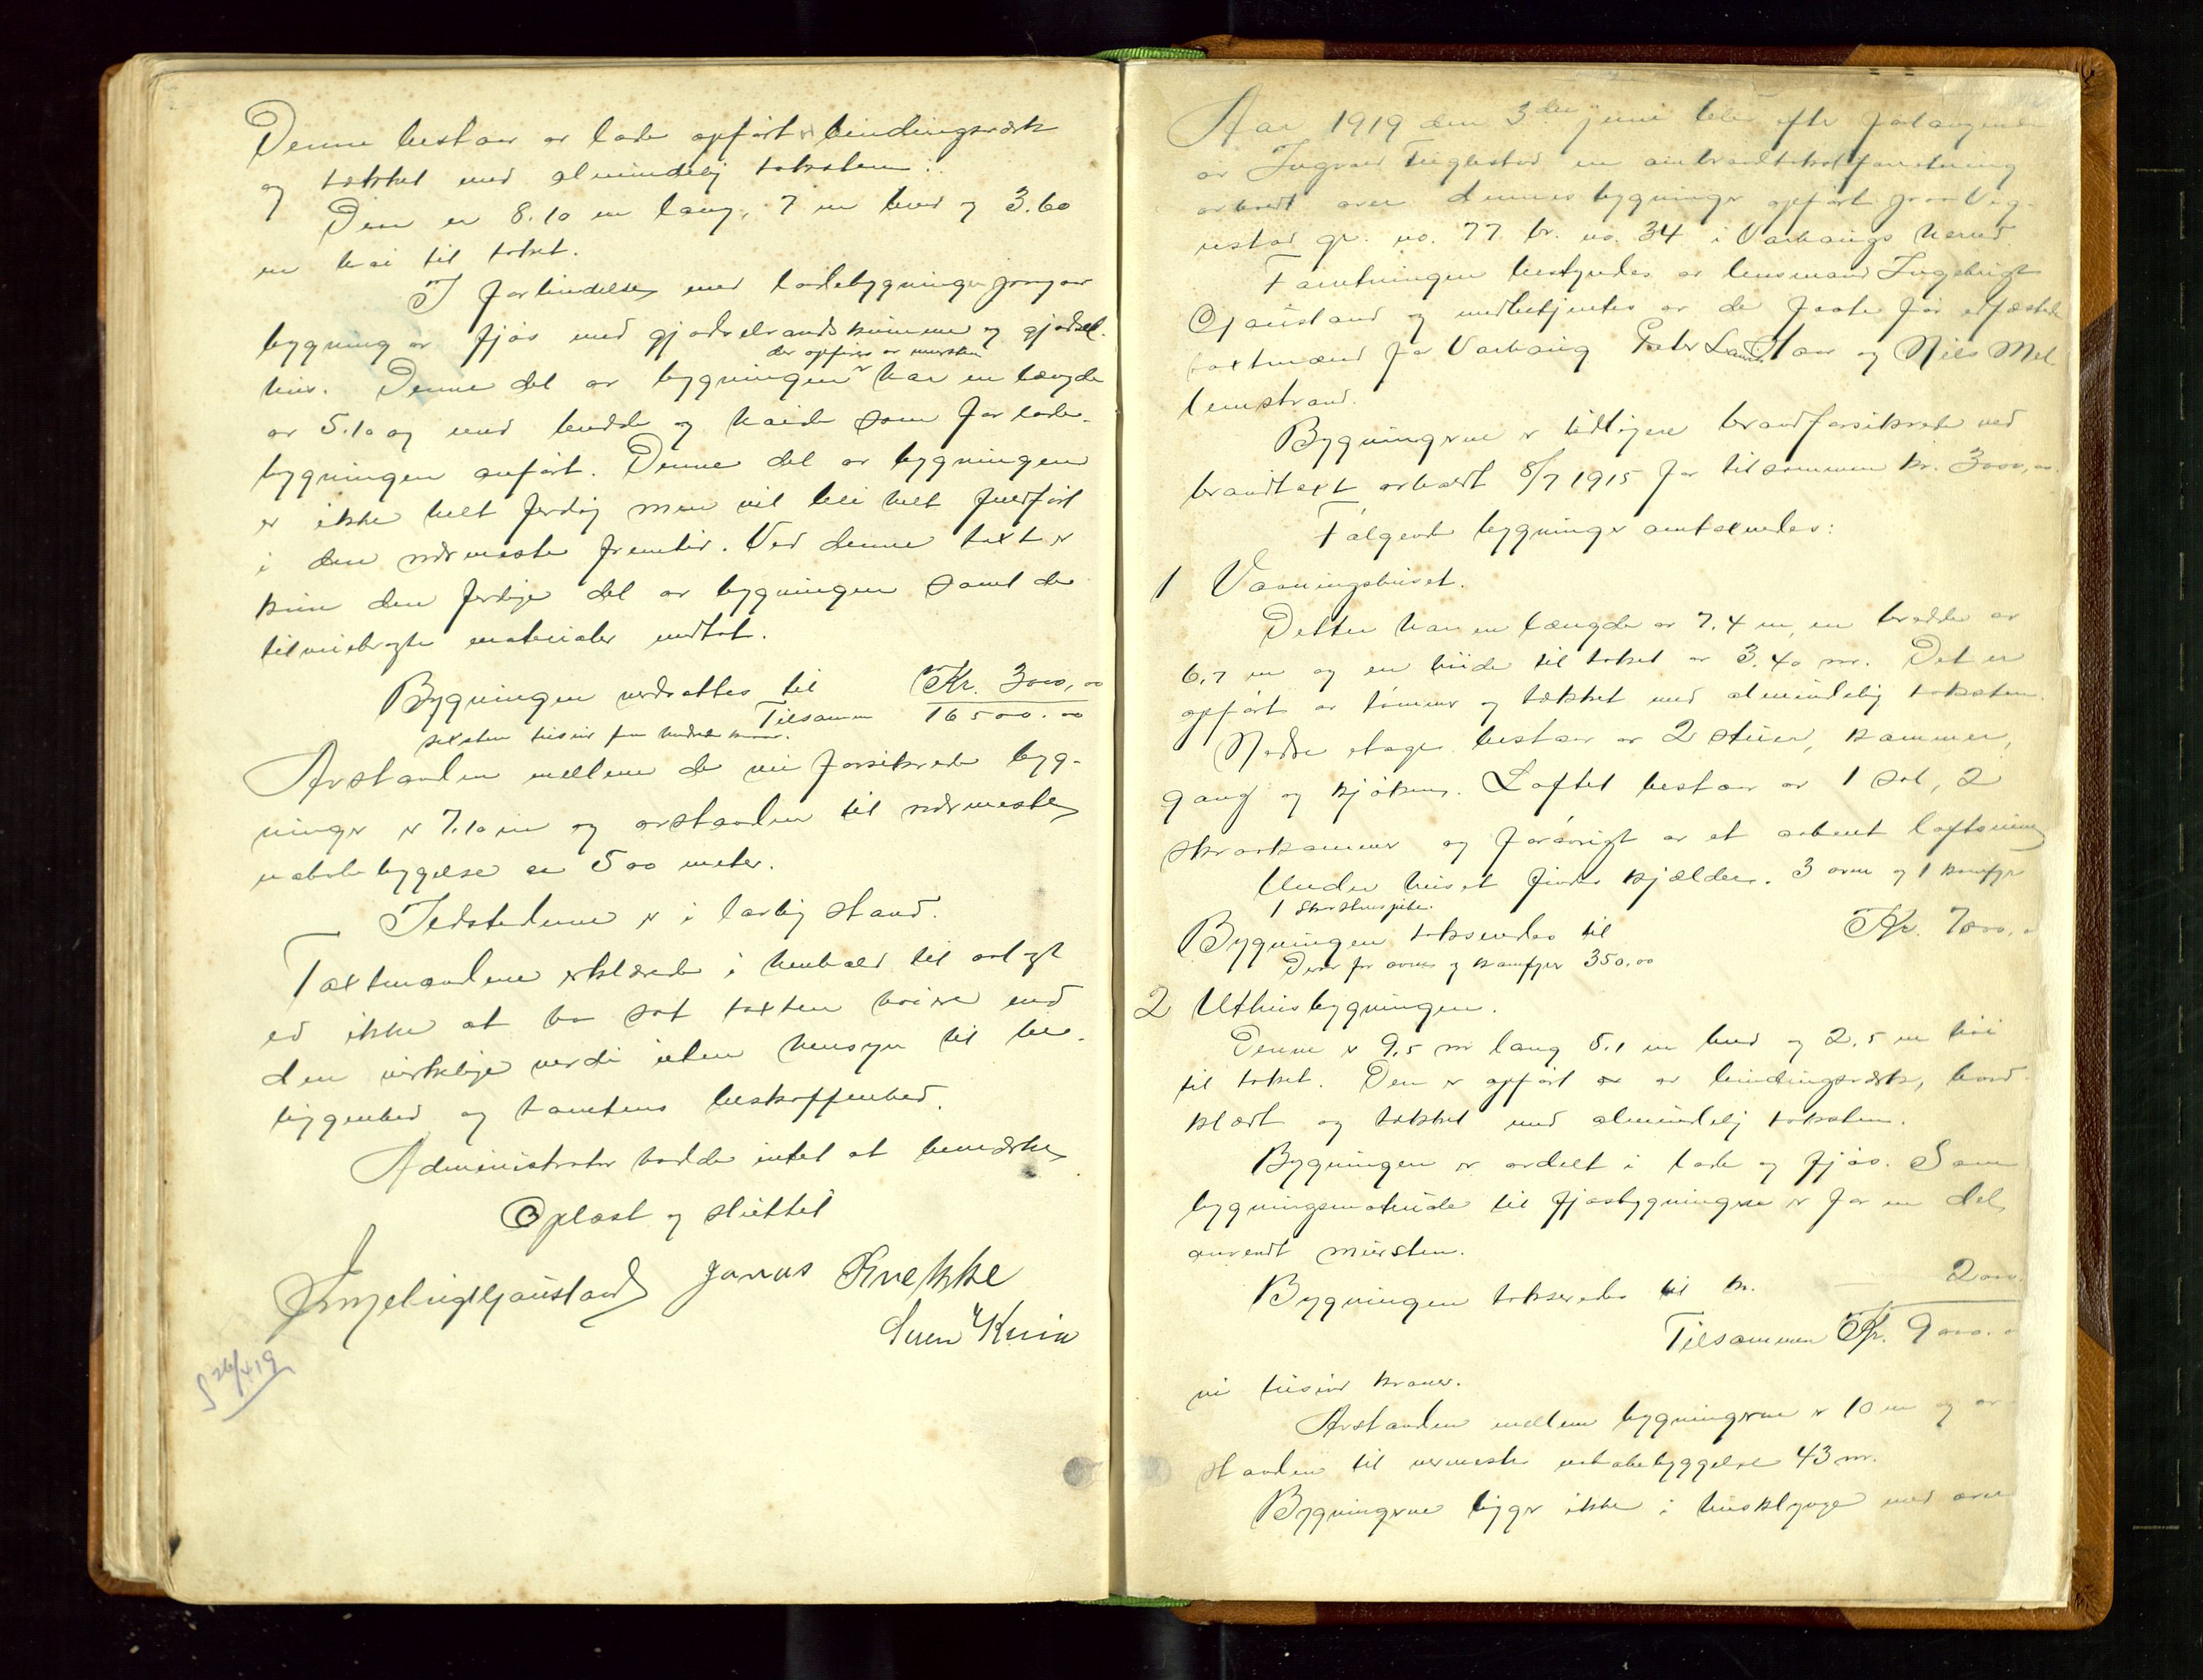 Denne bestaar av lade opført i bindingsverk
og tækket med almindelig taksten.
Den er 8.10 m lang, 7 m bred og 3.60
m høi til taket.
I forbindelse med ladebygningen
bygning av fjøs med gjødselvandskumme og gjødsel-
der opføres av mursten
hus. Denne del av bygningen har en længde
av 5.10 og med bredde og høide som for lade-
bygningen anført. Denne del av bygningen
er ikke helt ferdig men vil bli helt fuldført
i den nærmeste fremtid. Ved denne takt er
kun den ferdige del av bygningen samt de
tilveiebragte materialer medtat.
Bygningen verdsættes til Kr. 3000,00
Tilsammen 16500.00
seksten tusind fem hundrede kroner.
Avstanden mellem de nu forsikrede byg-
ninger er 7.10 m og avstanden til nærmeste
nabobebygelse er 500 meter.
Ildstederne er i lovlig stand.
Taxtmændene erklærede i henhold til avlagt
ed ikke at ha sat taxten høiere end
den virkelige verdi uten hensyn til be-
liggenhed og tomtens beskaffenhed.
Administrator hadde intet at bemerke
Oplæst og sluttet
Ingebrigt Gausland Jonas Knekke
Sven Kvia
S 26/4 19
Aar 1919 den 3die juni blev efter forlangende
av Ingvald Tuglestad en ombrandtakstforretning
avholdt over dennes bygninger opført paa Vig-
restad gr. no. 77 br. no. 34 i Varhaugs herred
Forretningen bestyredes av lensmand Ingebrigt
Gausland og medbetjentes av de faste før edfæstede
taxtmænd for Varhaug Peder Haar og Nils Mel
lemstrand.
Bygningerne er tidligere brandforsikrede ved
brandtaxt avholdt 8/7 1915 for tilsammen kr. 3000,00.
Følgende bygninger omtaxeredes:
1 Vaaningshuset.
Dette har en længde av 7.4 m, en bredde av
6,7 m og en høide til taket av 3.40 m. Det er
opført av tømmer og tækket med almindelig taksten.
Nedre etage bestaar av 2 stuer, kammer,
gang og kjøken. Loftet bestaar av 1 sal, 2
skraakammer og forøvrigt av et aabent loftsrum
Under huset findes kjælder. 3 ovne og 1 komfyr
1 skorstenspibe.
Bygningen takseredes til Kr. 7000,0
Derav for ovne og komfyr 350,00
2 Uthusbygningen.
Denne er 9,5 m lang 5.1 m bred og 2,5 m høi
til taket. Den er opført av bindingsverk, bord-
klædt og tækket med almindelig taksten.
Bygningen er avdelt i lade og fjøs. Som
bygningsmateriale til fjøsbygningen er for en del
anvendt mursten.
Bygningen takseredes til kr. 2000.
Tilsammen Kr. 9000.0
ni tusind kroner.
Avstanden mellem bygningerne er 10 m og av-
standen til nermeste nabobebyggelse 43 m.
Bygningerne ligger ikke i husklynge med